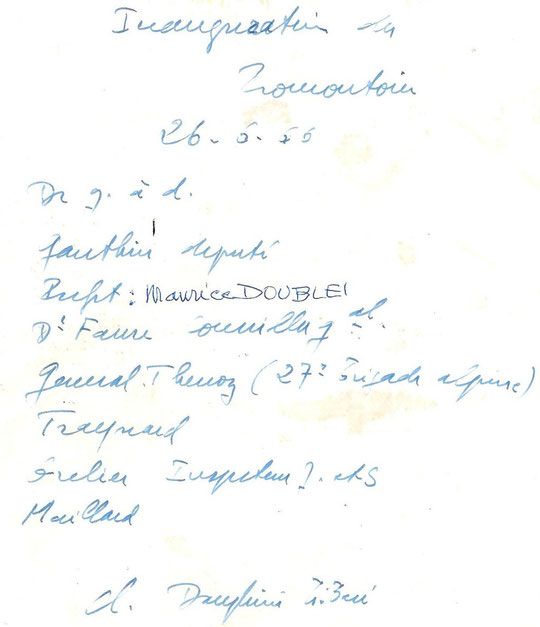 Inauguration du
Promontoire
De g. à d.
Gauthier député
Préfet : Maurice DOUBLET
Dr Faure Conseiller gal.
Général Thenoz (27e Brigade alpine)
Traynard
Inspecteur J. et S
Maillard
cl. Dauphiné